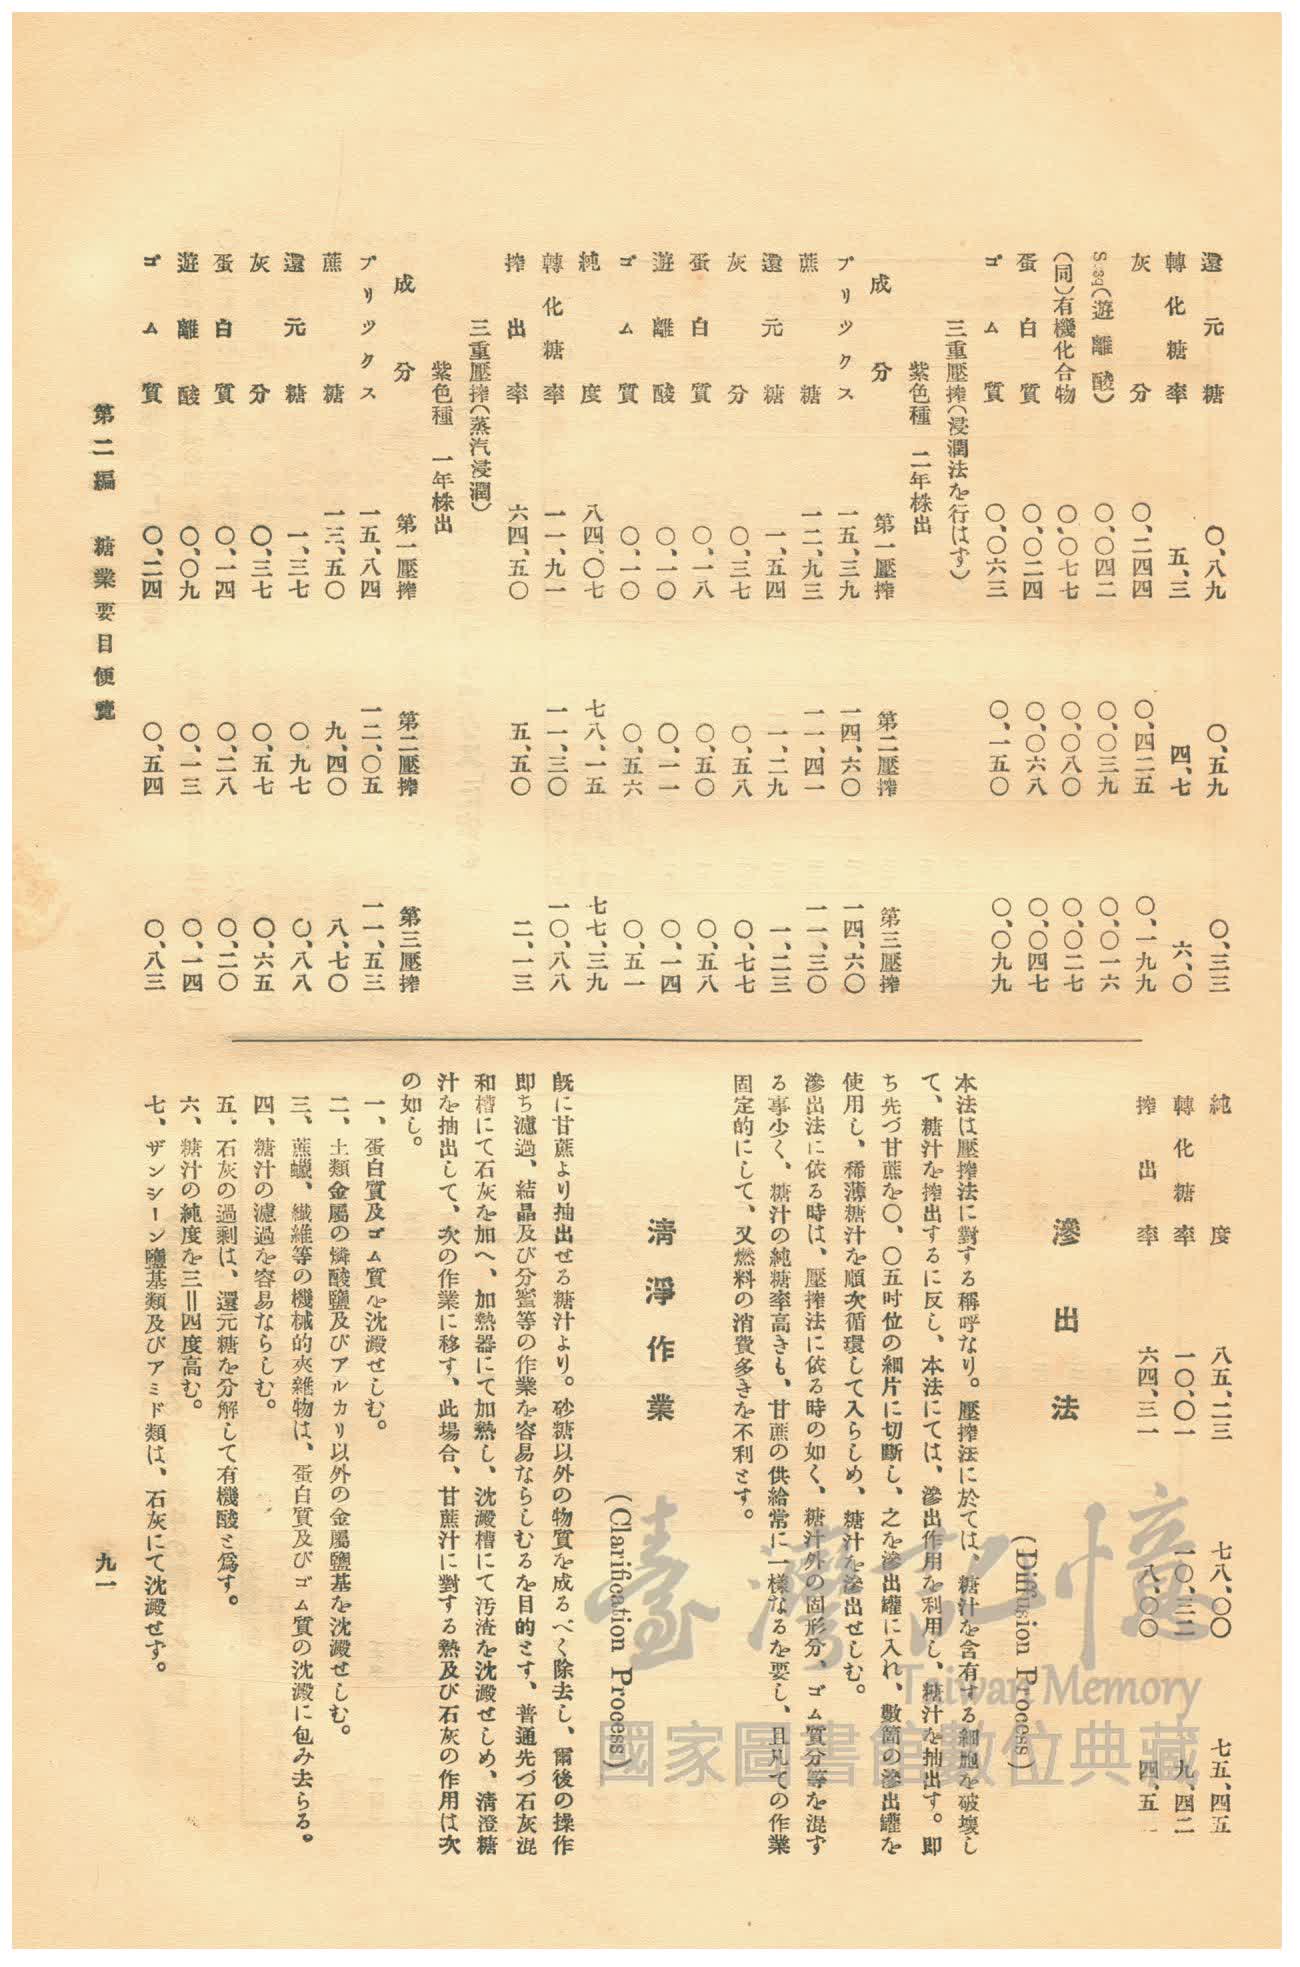 還元糖　〇、八九　〇、五九　〇、三三
轉化糖率　五、三　四、七　六、〇
灰分　〇、二四四　〇、四二五　〇、一九九
（遊離酸）　〇、〇四二　〇、〇三九　〇、〇一六
（同）有機化合物　〇、〇七七　〇、〇八〇　〇、〇二七
蛋白質　〇、〇二四　〇、〇六八　〇、〇四七
ゴム質　〇、〇六三　〇、一五〇　〇、〇九九
三重壓搾（浸潤法を行はす）
紫色種　二年株出
成分　第一壓搾　第二壓搾　第三壓搾
ブリツクス　一五、三九　一四、六〇　一四、六〇
蔗糖　一二、九三　一一、四一　一一、三〇
還元糖　一、五四　一、二九　一、二三
灰分　〇、三七　〇、五八　〇、七七
蛋白質　〇、一八　〇、五〇　〇、五八
遊離酸　〇、一〇　〇、一一　〇、一四
ゴム質　〇、一〇　〇、五六　〇、五一
純度　八四、〇七　七八、一五　七七、三九
轉化糖率　一一、九一　一一、三〇　一〇、八八
搾出率　六四、五〇　五、五〇　二、一三
三重壓搾（蒸汽浸潤）
紫色種　一年株出
成分　第一壓搾　第二壓搾　第三壓搾
ブリツクス　一五、八四　一二、〇五　一一、五三
蔗糖　一三、五〇　九、四〇　八、七〇
還元糖　一、三七　〇、九七　〇、八八
灰分　〇、三七　〇、五七　〇、六五
蛋白質　〇、一四　〇、二八　〇、二〇
遊離酸　〇、〇九　〇、一三　〇、一四
ゴム質　〇、二四　〇、五四　〇、八三
純度　八五、二三　七八、〇〇　七五、四五
轉化糖率　一〇、〇一　一〇、三二　九、四二
搾出率　六四、三一　八、〇〇　四、五一
滲出法
(Diffusion Process)
本法は壓搾法に對する稱呼なり。壓搾法に於ては、糖汁を含有する細胞を破壞し
て、糖汁を搾出するに反し、本法にては、滲出作用を利用し、糖汁を抽出す。即
ち先づ甘蔗を〇、〇五吋位の細片に切斷し、之を滲出罐に入れ、數箇の滲出罐を
使用し、稀薄糖汁を順次循環して入らしめ、糖汁を滲出せしむ。
滲出法に依る時は、壓搾法に依る時の如く、糖汁外の固形分、ゴム質分等を混す
る事少く、糖汁の純糖率高きも、甘蔗の供給常に一樣なるを要し、且凡ての作業
固定的にして、又燃料の消費多きを不利とす。
淸淨作業
(Clarification Process)
既に甘蔗より抽出せる糖汁より。砂糖以外の物質を成るべく除去し、爾後の操作
即ち濾過、結晶及び分蜜等の作業を容易ならしむるを目的とす、普通先づ石灰混
和槽にて石灰を加へ、加熱器にて加熱し、沈澱槽にて汚渣を沈澱せしめ、淸澄糖
汁を抽出して、次の作業に移す、此場合、甘蔗汁に對する熱及び石灰の作用は次
の如し。
一、蛋白質及ゴム質を沈澱せしむ。
二、土類金屬の燐酸鹽及びアルカリ以外の金屬鹽基を沈澱せしむ。
三、蔗蠟、纖維等の機械的夾雜物は、蛋白質及びゴム質の沈澱に包み去らる。
四、糖汁の濾過を容易ならしむ。
五、石灰の過剩は、還元糖を分解して有機酸と爲す。
六、糖汁の純度を三＝四度高む。
七、ザンシーン鹽基類及びアミド類は、石灰にて沈澱せす。
第二編　糖業要目便覽
九一
臺灣記憶
Taiwan Memory
國家圖書館數位典藏